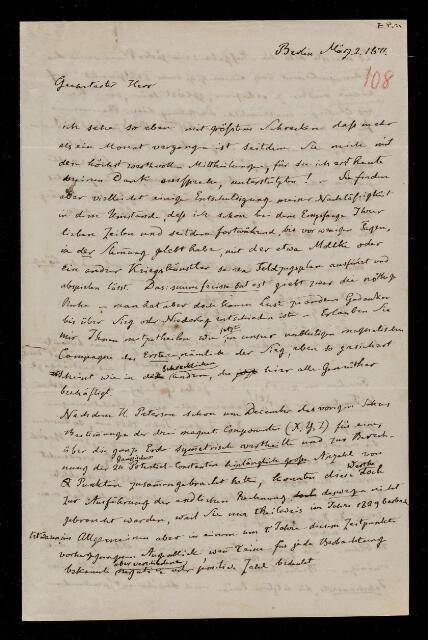 Berlin März 2. 1871.
108
Geehrtester Herr
ich sehe so eben mit größtem Schrecken daß mehr
als ein Monat vergangen ist seitdem Sie mich mit
den höchst werthvollen Mittheilungen, für die ich erst heute
meinen Dank ausspreche, unterstützten! – Sie finden
aber vielleicht einige Entschuldigung meiner Nachlässigkeit
in dem Umstande, daß ich schon bei dem Empfange Ihrer
lieben Zeilen und seitdem fortwährend, bis vor wenigen Tagen,
in der Stimmung gelebt habe, mit der etwa Moltke oder
ein andrer Kriegskünstler so ein Feldzugsplan ausführt und
abspielen lässt. Das: summa fecisse sat est giebt zwar die nöthige
Ruhe – man hat aber doch kaum Lust zu andern Gedanken
bis über Sieg oder Niederlage entschieden ist – Erlauben Sie
mir Ihnen mitzutheilen wie jetzt in unsrer unblutigen magnetischen
Campagne das Erstere, nämlich der Sieg, eben so gesichert
scheint wie in der schrecklichen andern, die hier alle Gemüther
beschäftigt.
Nachdem H. Petersen schon im December des vorigen Jahres
Bestimmungen der drei magnet. Componenten (X, Y, Z) für eine
über die ganze Erde symetrisch vertheilte und zur Berech-
nung der 24 Gaussischen Potential-Constanten Anzahl von
Punkten zusammengebracht hatte, konnten diese Werthe doch
zur Ausführung der endlichen Rechnung deswegen nicht
gebraucht werden, weil Sie nur theilweis im Jahre 1829 beobach-
tet waren, im Allgemeinen aber in einem um t Jahre diesem Zeitpunkte
vorhergegangenen Augenblick wenn t eine für jede Beobachtung
bekannte aber verschiedene negative oder positive Zahl bedeutet